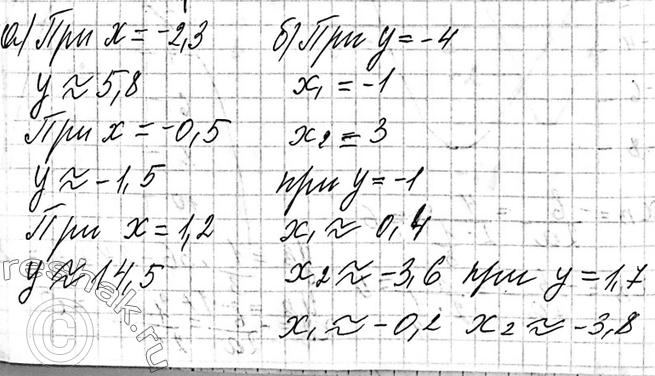 а) При x = -2,3
y ≈ 5,8
При x = -0,5
y ≈ -1,5
При x = 1,2
y ≈ 14,5
б) При y = -4
x₁ = -1
x₂ = 3
при y = -1
x₁ ≈ 0,4
x₂ ≈ -3,6 при y = 1,7
x₁ ≈ -0,2 x₂ ≈ -3,8
reshak.ru
©